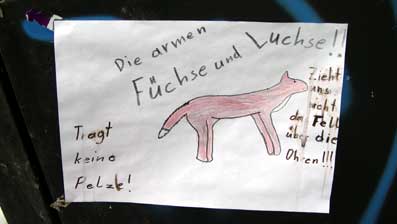 Die armen
Füchse und Luchse!!
Zieht
uns
nicht
das Fell
über die
Ohren!!!
Tragt
keine
Pelze!